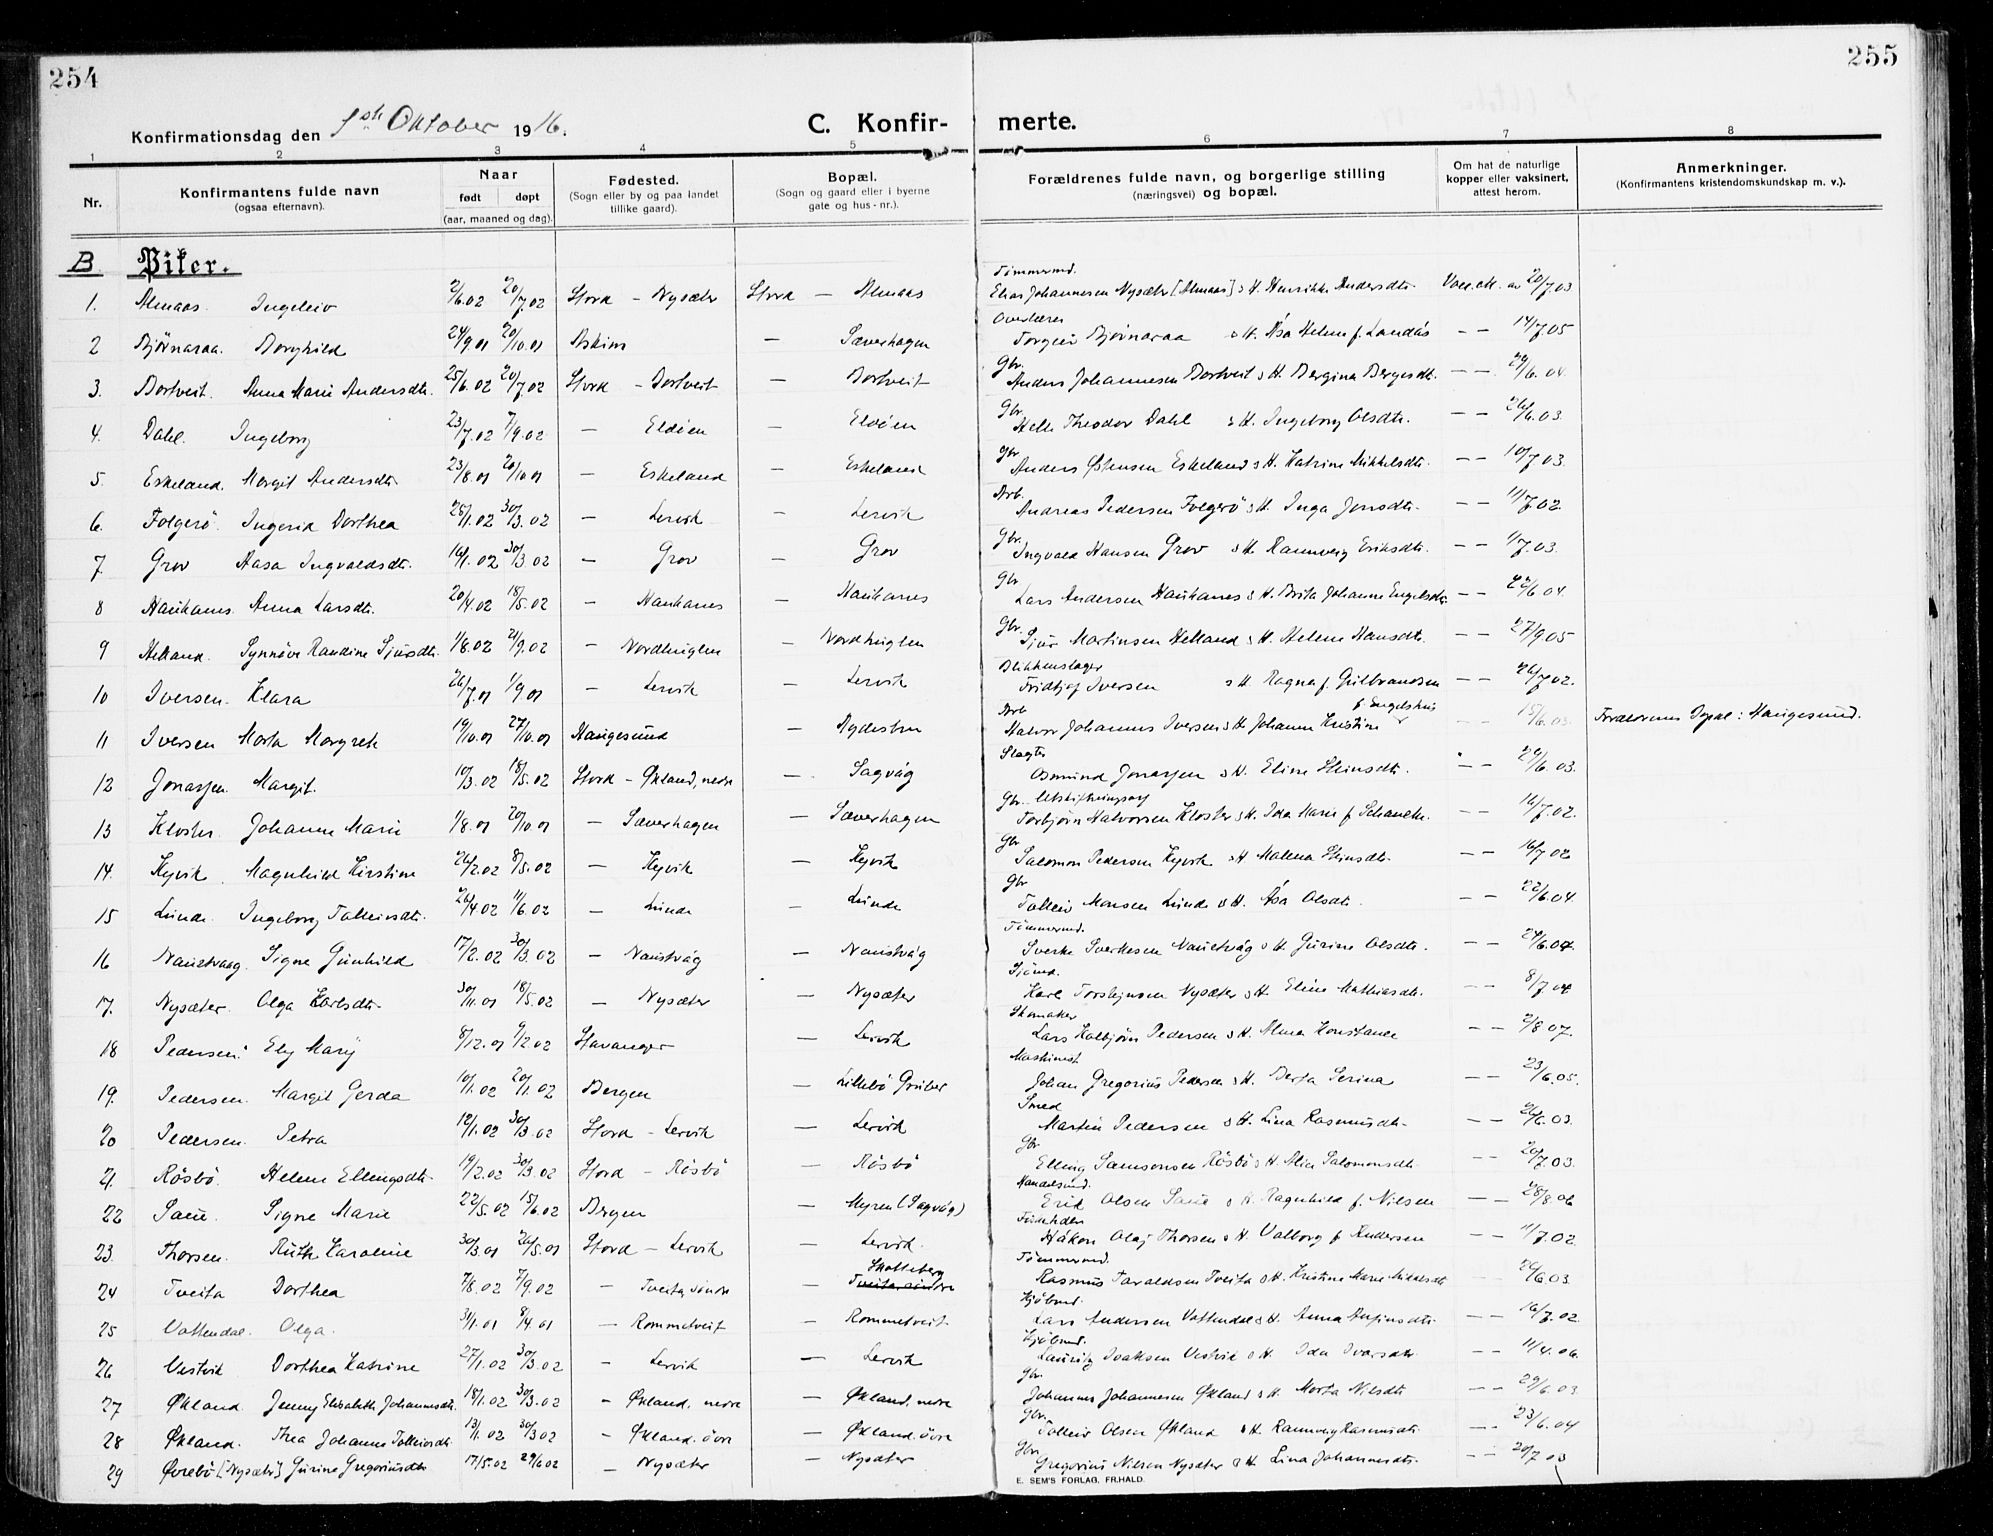 254
255
Konfirmationsdag den 1ste Oktober 1916.
C. Konfir- merte.
1 2 3 4 5 6 7 8
Nr.
Konfirmantens fulde navn
(ogsaa efternavn).
Naar
født døpt
(aar, maaned og dag).
Fødested.
(Sogn eller by og paa landet
tillike gaard).
Bopæl.
(Sogn og gaard eller i byerne
gate og hus-nr.).
Forældrenes fulde navn, og borgerlige stilling
(næringsvei) og bopæl.
Om hat de naturlige
kopper eller vaksinert,
attest herom.
Anmerkninger.
(Konfirmantens kristendomskundskap m. v.).
B Piker.
Tømmermd.
1. Almaas Ingeleiv 2/6.02 20/7.02 Stord - Nysæter Stord - Almaas Elias Johannesen Nysæter [Almaas] o H. Henrikke Andersdtr. Vacc. att. av 20/7.03
Overlærer
2 Bjørnaraa. Borghild 24/9.01 20/10.01 Askim - Sæverhagen Torgeir Bjørnaraa o H. Åsa Helene f. Landås - - 14/7.05
Gbr.
3. Bortveit. Anna Marie Andersdtr. 25/6.02 20/7.02 Stord - Bortveit - Bortveit Anders Johannesen Bortveit o H. Bergina Bergesdtr. - - 29/6.04
Gbr.
4. Dahl. Ingeborg 23/7.02 7/9.02 - Eldøen - Eldøen Helle Theodor Dahl o H. Ingeborg Olsdtr. - - 26/6.03
Gbr.
5. Eskeland. Margit Andersdtr 23/8.01 20/10.01 - Eskeland - Eskeland Anders Østensen Eskeland o H. Katrine Mikkelsdtr. - - 10/7 03.
Arb.
6. Folgerø. Ingerid Dorthea 25/1.02 30/3.02 - Lervik - Lervik Andreas Pedersen Folgerø o H. Inga Jonsdtr. - - 11/7.02.
Gbr.
7. Grov Aasa Ingvaldsdtr. 16/1.02 30/3 02 - Grov - Grov Ingvald Hansen Grov o H. Rannveig Eriksdtr. - - 1/7.03.
Gbr
8 Haukanes. Anna Larsdtr. 20/4.02 18/5.02 - Haukanes - Haukanes Lars Andersen Haukanes o H. Brita Johanne Engelsdtr - - 22/6 04.
Gbr.
9 Helland. Synnøve Randine Sjursdtr. 1/8.02 21/9.02 - Nordhuglen - Nordhuglen Sjur Martinsen Helland o H. Helene Hansdtr. - - 27/9.05
Blikkenslager
10 Iversen. Klara 26/7.01 1/9.01 - Lervik - Lervik Fridtjof Iversen o H. Ragna f. Gulbrandsen - - 26/7 02.
Arb f. Engelshus
11 Iversen Marta Margrete 19/10.01 27/10.01 Haugesund - Halvor Johannes Iversen o H. Johanne Kristine - - 15/6.03 Forældrenes bopæl: Haugesund.
Slagter
12 Jonassen. Margit. 10/3.02 18/5.02 Stord - Økland, nedre - Sagvåg Osmund Jonassen o H. Eline Steinsdtr. - - 29/6.03.
Gbr. Utskiftningsorf
13 Kloster. Johanne Marie 1/8.01 20/10 01 - Sæverhagen - Sæverhagen Torbjørn Halvorsen Kloster o H. Ida Marie f Schanche. - - 16/7.02.
Gbr
14. Kyvik. Magnhild Kirstine 26/2.02 8/5.02 - Kyvik - Kyvik Salomon Pedersen Kyvik o H Malena Steinsdtr. - - 16/7 02
Gbr
15 Lunde. Ingeborg Tolleivsdtr. 26/4.02 11/6.02 - Lunde - Lunde Tolleiv Monsen Lunde o H. Åsa Olsdtr. - - 22/6 04.
Tømmermd.
16 Naustvaag. Signe Gunhild 17/2.02 30/3.02 - Naustvåg - Naustvåg Sverke Sverkesen Naustvåg o H. Gurine Olsdtr. - - 24/6.04.
Sjømd.
17. Nysæter. Olga Karlsdtr. 30/11.01 18/5.02 - Nysæter - Nysæter Karl Torsteinsen Nysæter o H. Eline Mathiasdtr. - - 8/7 04
Skomaker
18 Pedersen. Ely Mary 8/12.01 9/2.02 Stavanger - Lervik Lars Kolbjørn Pedersen o H. Alma Konstance - - 2/8 07.
Maskinist
19. Pedersen. Margit Gerda 10/1.02 20/1.02 Bergen - Lillebö Gruber Johan Gregorius Pedersen o H. Berta Serina - - 23/6.05.
Smed
20 Pedersen. Petra 12/1.02 30/3.02 Stord - Lervik - Lervik Martin Pedersen o H. Lina Rasmusdtr. - - 26/6.03
Gbr
21. Rösbö. Helene Ellingsdtr. 19/2.02 30/3.02 Stord - Rösbö - Rösbö Elling Samsonsen Rösbö o H. Alice Salomonsdtr. - - 20/7.03.
Handelsmd.
22 Saue. Signe Marie 22/5.02 15/6.02 Bergen - Myren (Sagvåg) Erik Olsen Saue o H. Ragnhild f. Nilsen - - 28/8.06
23. Thorsen. Ruth Karoline 30/3.01 26/5.01 Stord - Lervik - Lervik. Håkon Olaj Thorsen o H. Valborg f Andersen - - 11/7.02.
Tømmermd.
Skotteberg
24 Tveita Dorthea 7/8.02 7/9.02 - Tveita, söndre - Tveita, söndre Rasmus Taraldsen Tveita o H. Kristine Marie Mikkelsdtr - - 26/6.03.
Kjøbmd.
25 Vattendal. Olga. 31/1.01 8/4.01 - Rommetveit - Rommetveit Lars Andersen Vattendal o H. Anna Anfinsdtr. - - 16/7.02
Kjøbmd.
26 Vestvik Dorthea Katrine 27/1.02 30/3.02 - Lervik - Lervik Lauritz Isaksen Vestvik o H. Ida Ivarsdtr. - - 11/4.06.
Gbr.
27 Økland. Jenny Elisabeth Johannesdtr. 18/1.02 30/3.02 - Økland, nedre - Økland, nedre Johannes Johannesen Økland o H. Marta Nilsdtr - - 29/6.03
Gbr.
28 Økland. Thea Johanne Tolleivsdtr. 13/1.02 30/3 02 - Økland. övre - Økland. övre Tolleiv Olsen Økland o H. Rannveig Rasmusdtr. - - 23/6.04
Gbr.
29 Övrebö [Nysæter] Gurine Gregoriusdtr 17/5.02 29/6 02 - Nysæter - Nysæter Gregorius Nilsen Nysæter o H. Lina Johannesdtr. - - 20/7 03
E. SEM'S FORLAG, FR.HALD.